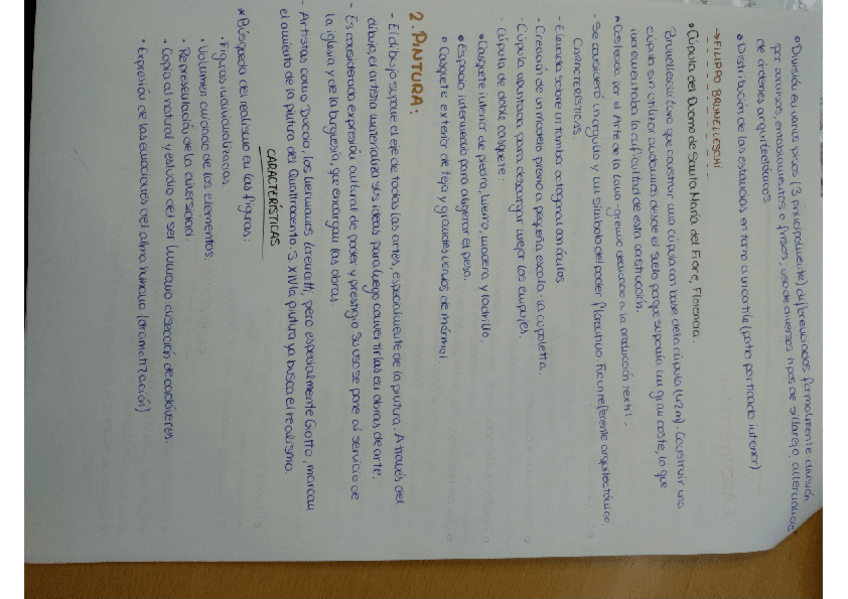 • División en varios pisos (3 principalmente) diferenciados formalmente división
por columnas, entablamentos o frisos, uso de diversos tipos de sillarejo, alternancia
de órdenes arquitectónicos.
• Distribución de las estancias en torno a un cortile (patio porticado interior)
→ FILIPPO BRUNELLESCHI
• Cúpula del Duomo de Santa María del Fiore, Florencia.
Brunelleschi tuvo que construir una cúpula con base de la cúpula (42m). Construir una
cúpula sin utilizar andamios desde el suelo porque suponía un gran coste, lo que
incrementaba la dificultad de esta construcción.
• Costeada por el Arte de la Lana: gremio dedicado a la producción textil.
- Se consideró un orgullo y un símbolo del poder florentino. Fue un referente arquitectónico
CARACTERÍSTICAS
- Elevada sobre un tambor octogonal con óculos
- Creación de un modelo previo a pequeña escala: la cupoletta.
· Cúpula apuntada para descargar mejor los empujes.
· Cúpula de doble casquete:
• Casquete interior de piedra, hierro, madera y ladrillo.
• Espacio intermedio para aligerar el peso.
• Casquete exterior de teja y grandes nervios de mármol
2. PINTURA:
- El dibujo supone el eje de todas las artes, especialmente de la pintura. A través del
dibujo, el artista materializa sus ideas para luego convertirlas en obras de arte.
- Es considerada expresión cultural de poder y prestigio. Su uso se pone al servicio de
la iglesia y de la burguesía, que encargan las obras.
- Artistas como Duccio, los hermanos Lorenzetti, pero especialmente Giotto, marcan
el cimiento de la pintura del Quattrocento. S. XIV la pintura ya busca el realismo.
CARACTERISTICAS
* Búsqueda del realismo en las figuras:
• Figuras individualizadas.
• Volumen cercano de los elementos.
• Representación de la dimensión.
• Copia al natural y estudio del ser humano disección de cadáveres.
• Expresión de las emociones del alma humana (dramatización)